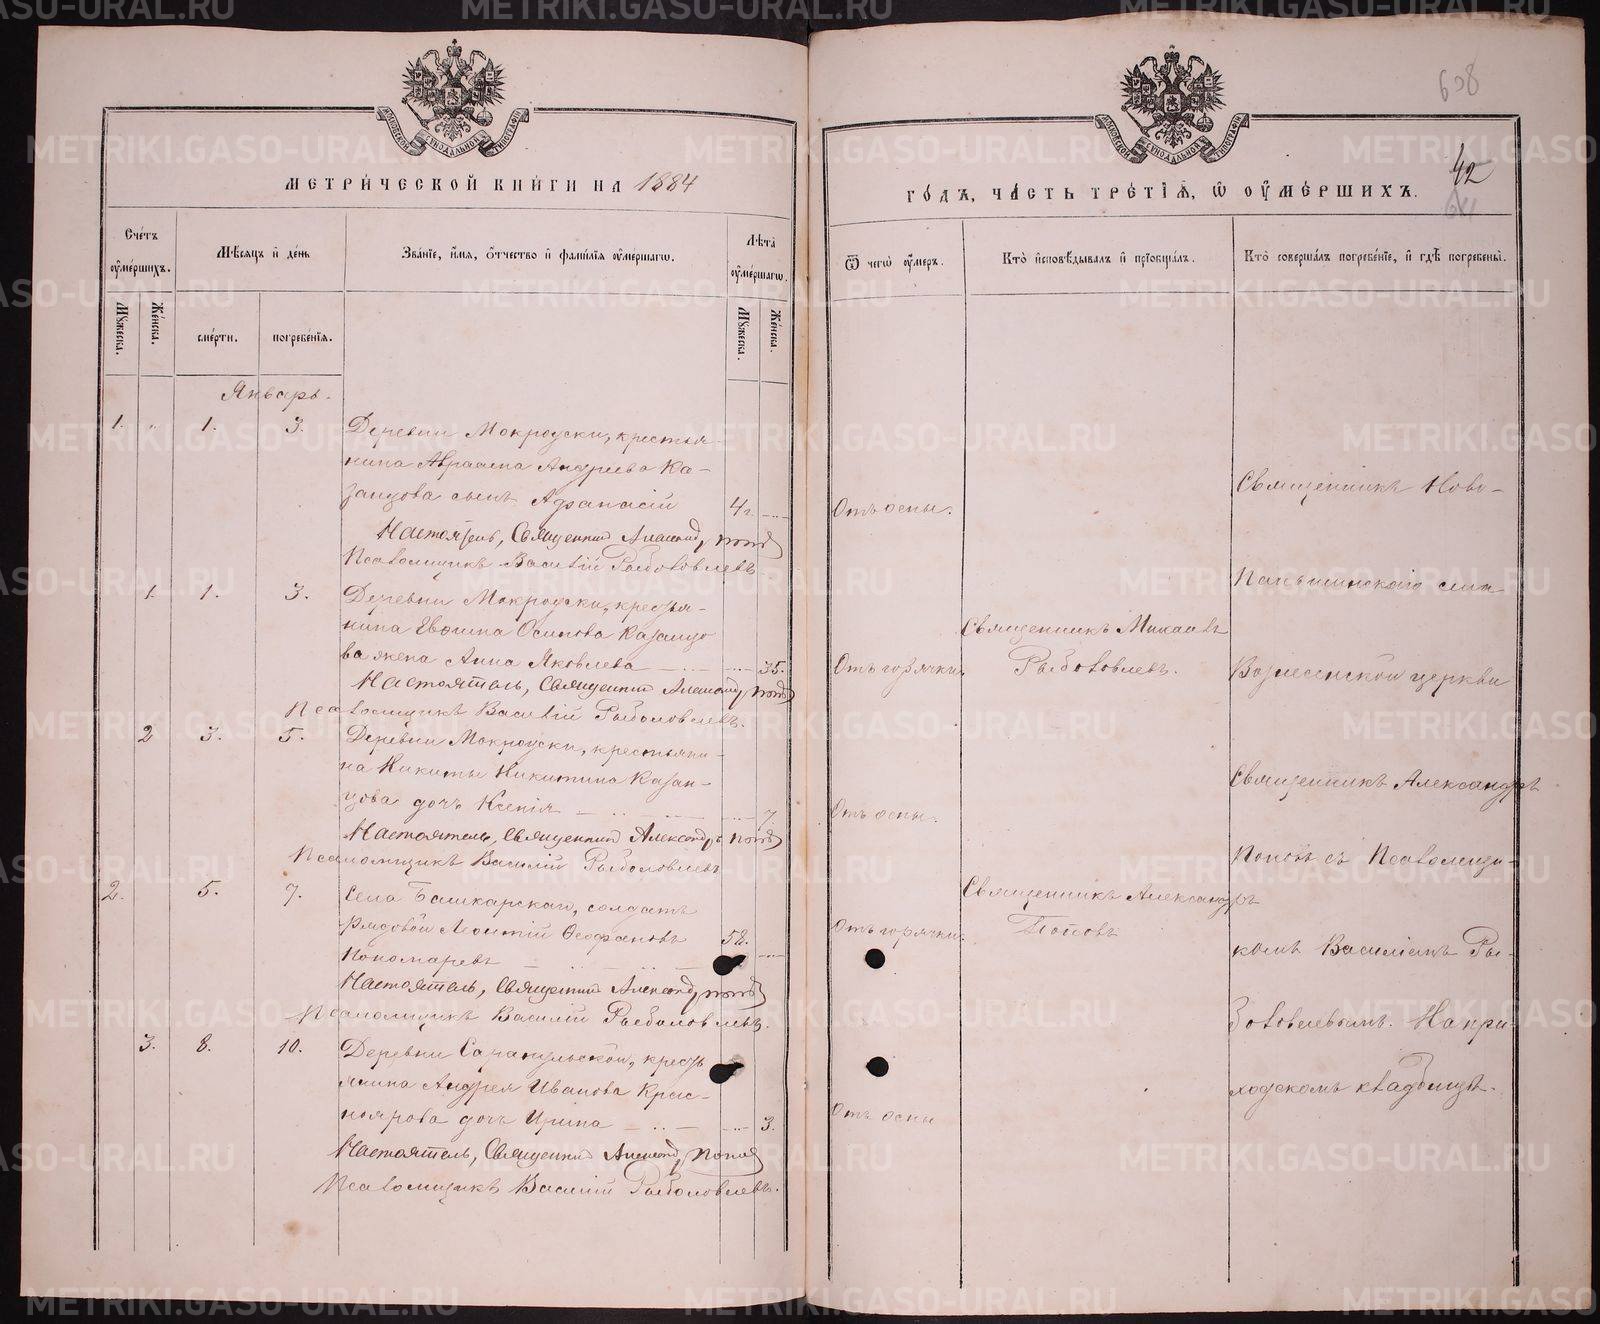 МЕТРИ́ЧЕСКОЙ КНИ́ГИ НА 1884
Сче́тъ ᲂу҆ме́ршихъ.
Мѣ́сяцъ и҆ де́нь
Зва́нїе, и҆́мя, ѻ҆́тчество и҆ фами́лїя ᲂу҆ме́ршагѡ.
Лѣ́та ᲂу҆ме́ршагѡ.
Мꙋ́жеска.
Же́нска.
сме́рти.
погребе́нїѧ.
Мꙋ́жеска.
Же́нска.
Январь.
1. „ 1. 3. Деревни Мокроуски, крестья-
нина Авраама Андреева Ка-
занцова сынъ Афанасій 4 г.
Настоятель, Священникъ Александръ Поповъ
Псаломщикъ Василій Рыболовлевъ
1. 1. 3. Деревни Мокроуски, крестья-
нина Евфима Осипова Казанцо
ва жена Анна Яковлева 35.
Настоятель, Священникъ Александръ Поповъ
Псаломщикъ Василій Рыболовлевъ.
2 3. 5. Деревни Мокроуски, крестьяни-
на Никиты Никитина Казан-
цова дочь Ксенія 7.
Настоятель, Священникъ Александръ Поповъ
Псаломщикъ Василій Рыболовлевъ
2. 5. 7. Села Башкарскаго, солдатъ
рядовой Леонтій Феофановъ 58.
Пономаревъ
Настоятель, Священникъ Александръ Поповъ
Псаломщикъ Василій Рыболовлевъ.
3. 8. 10. Деревни Сарапульской, кресть
янина Андрея Иванова Крас-
ноярова дочь Ирина 3.
Настоятель, Священникъ Александръ Поповъ
Псаломщикъ Василій Рыболовлевъ.
638
42
ГО́ДЪ, ЧА́СТЬ ТРЕ́ТЇѦ, Ѡ҆ ОУ҆МЕ́РШИХЪ.
Ѿ чегѡ̀ ᲂу҆́меръ.
Кто̀ и҆сповѣ́дывалъ и҆ прїѻбща́лъ.
Кто̀ соверша́лъ погребе́нїе, и҆ гдѣ̀ погребены̀.
Отъ оспы.
Отъ горячки.
Отъ оспы.
Отъ горячки.
Отъ оспы
Священникъ Михаилъ
Рыболовлевъ.
Священникъ Александръ
Поповъ
Священникъ Ново-
Паньшинскаго села
Вознесенской церкви
Священникъ Александръ
Поповъ съ Псаломщи-
комъ Василіемъ Ры-
боловлевымъ. На при-
ходскомъ кладбищѣ.
METRIKI.GASO-URAL.RU